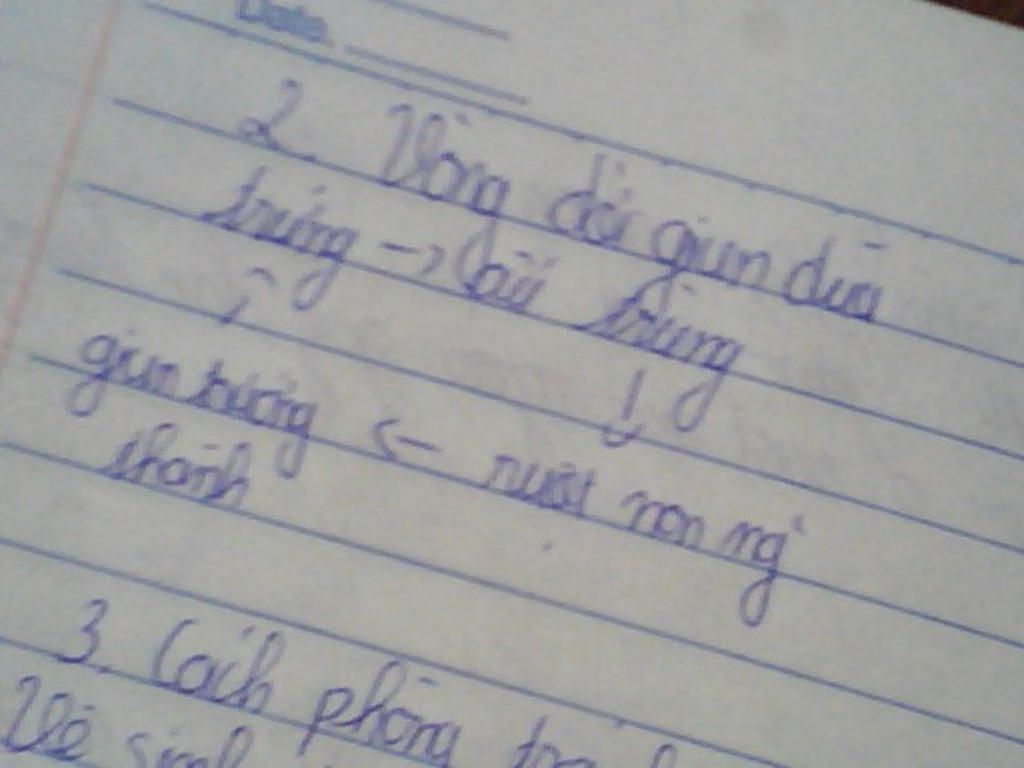 Date
2. Vòng đời giun đũa
trứng → ấu trùng
↑ ↓
giun trưởng ← ruột non ng
thành
3. Cách phòng
Vệ sinh